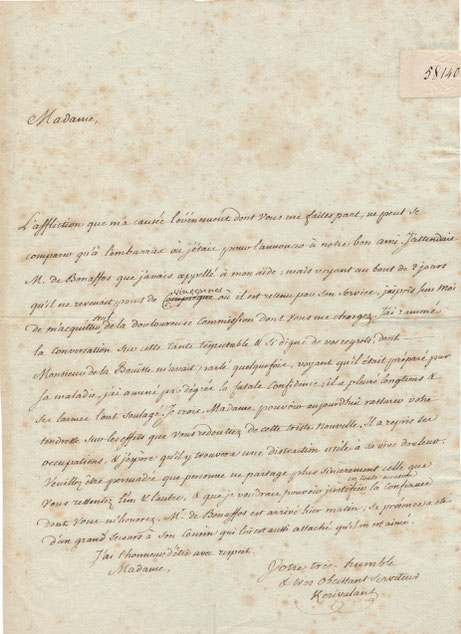 58140
Madame,
L'affliction que m'a causée l'évènement dont vous me faites part, ne peut se
comparer qu'à l'embarras où j'étais pour l'annoncer à notre bon ami. J'attendais
M. de Bonaffos que j'avais appellé à mon aide; mais voyant au bout de 2 jours
qu'il ne revenait point de Vincennes où il est retenu par son Service, j'ai pris sur moi
de m'acquitter de la douloureuse Commission dont vous me chargez. J'ai ramené
la conversation sur cette tante respectable & si digne de vos regrets, dont
Monsieur de la Bouëtte m'avait parlé quelquefois, voyant qu'il était préparé par
sa maladie, j'ai amené par dégrés la fatale confidence; il a pleuré longtems &
ses larmes l'ont soulagé. Je crois, Madame, pouvoir aujourd'hui rassurer votre
tendresse sur les effets que vous redoutiez de cette triste nouvelle. Il a repris ses
occupations, & j'espère qu'il y trouvera une distraction utile à sa vive douleur.
Veuillez être persuadée que personne ne partage plus sincèrement celle que
vous ressentez l'un & l'autre, & que je voudrais pouvoir justifier en toute occasion la Confiance
dont vous m'honorez. M. de Bonaffos est arrivé hier matin. Sa présence a été
d'un grand secours à son Cousin qui lui est aussi attaché qu'il en est aimé.
J'ai l'honneur d'être avec respect
Madame,
Votre très-humble
& très Obéissant Serviteur
Kerivalant